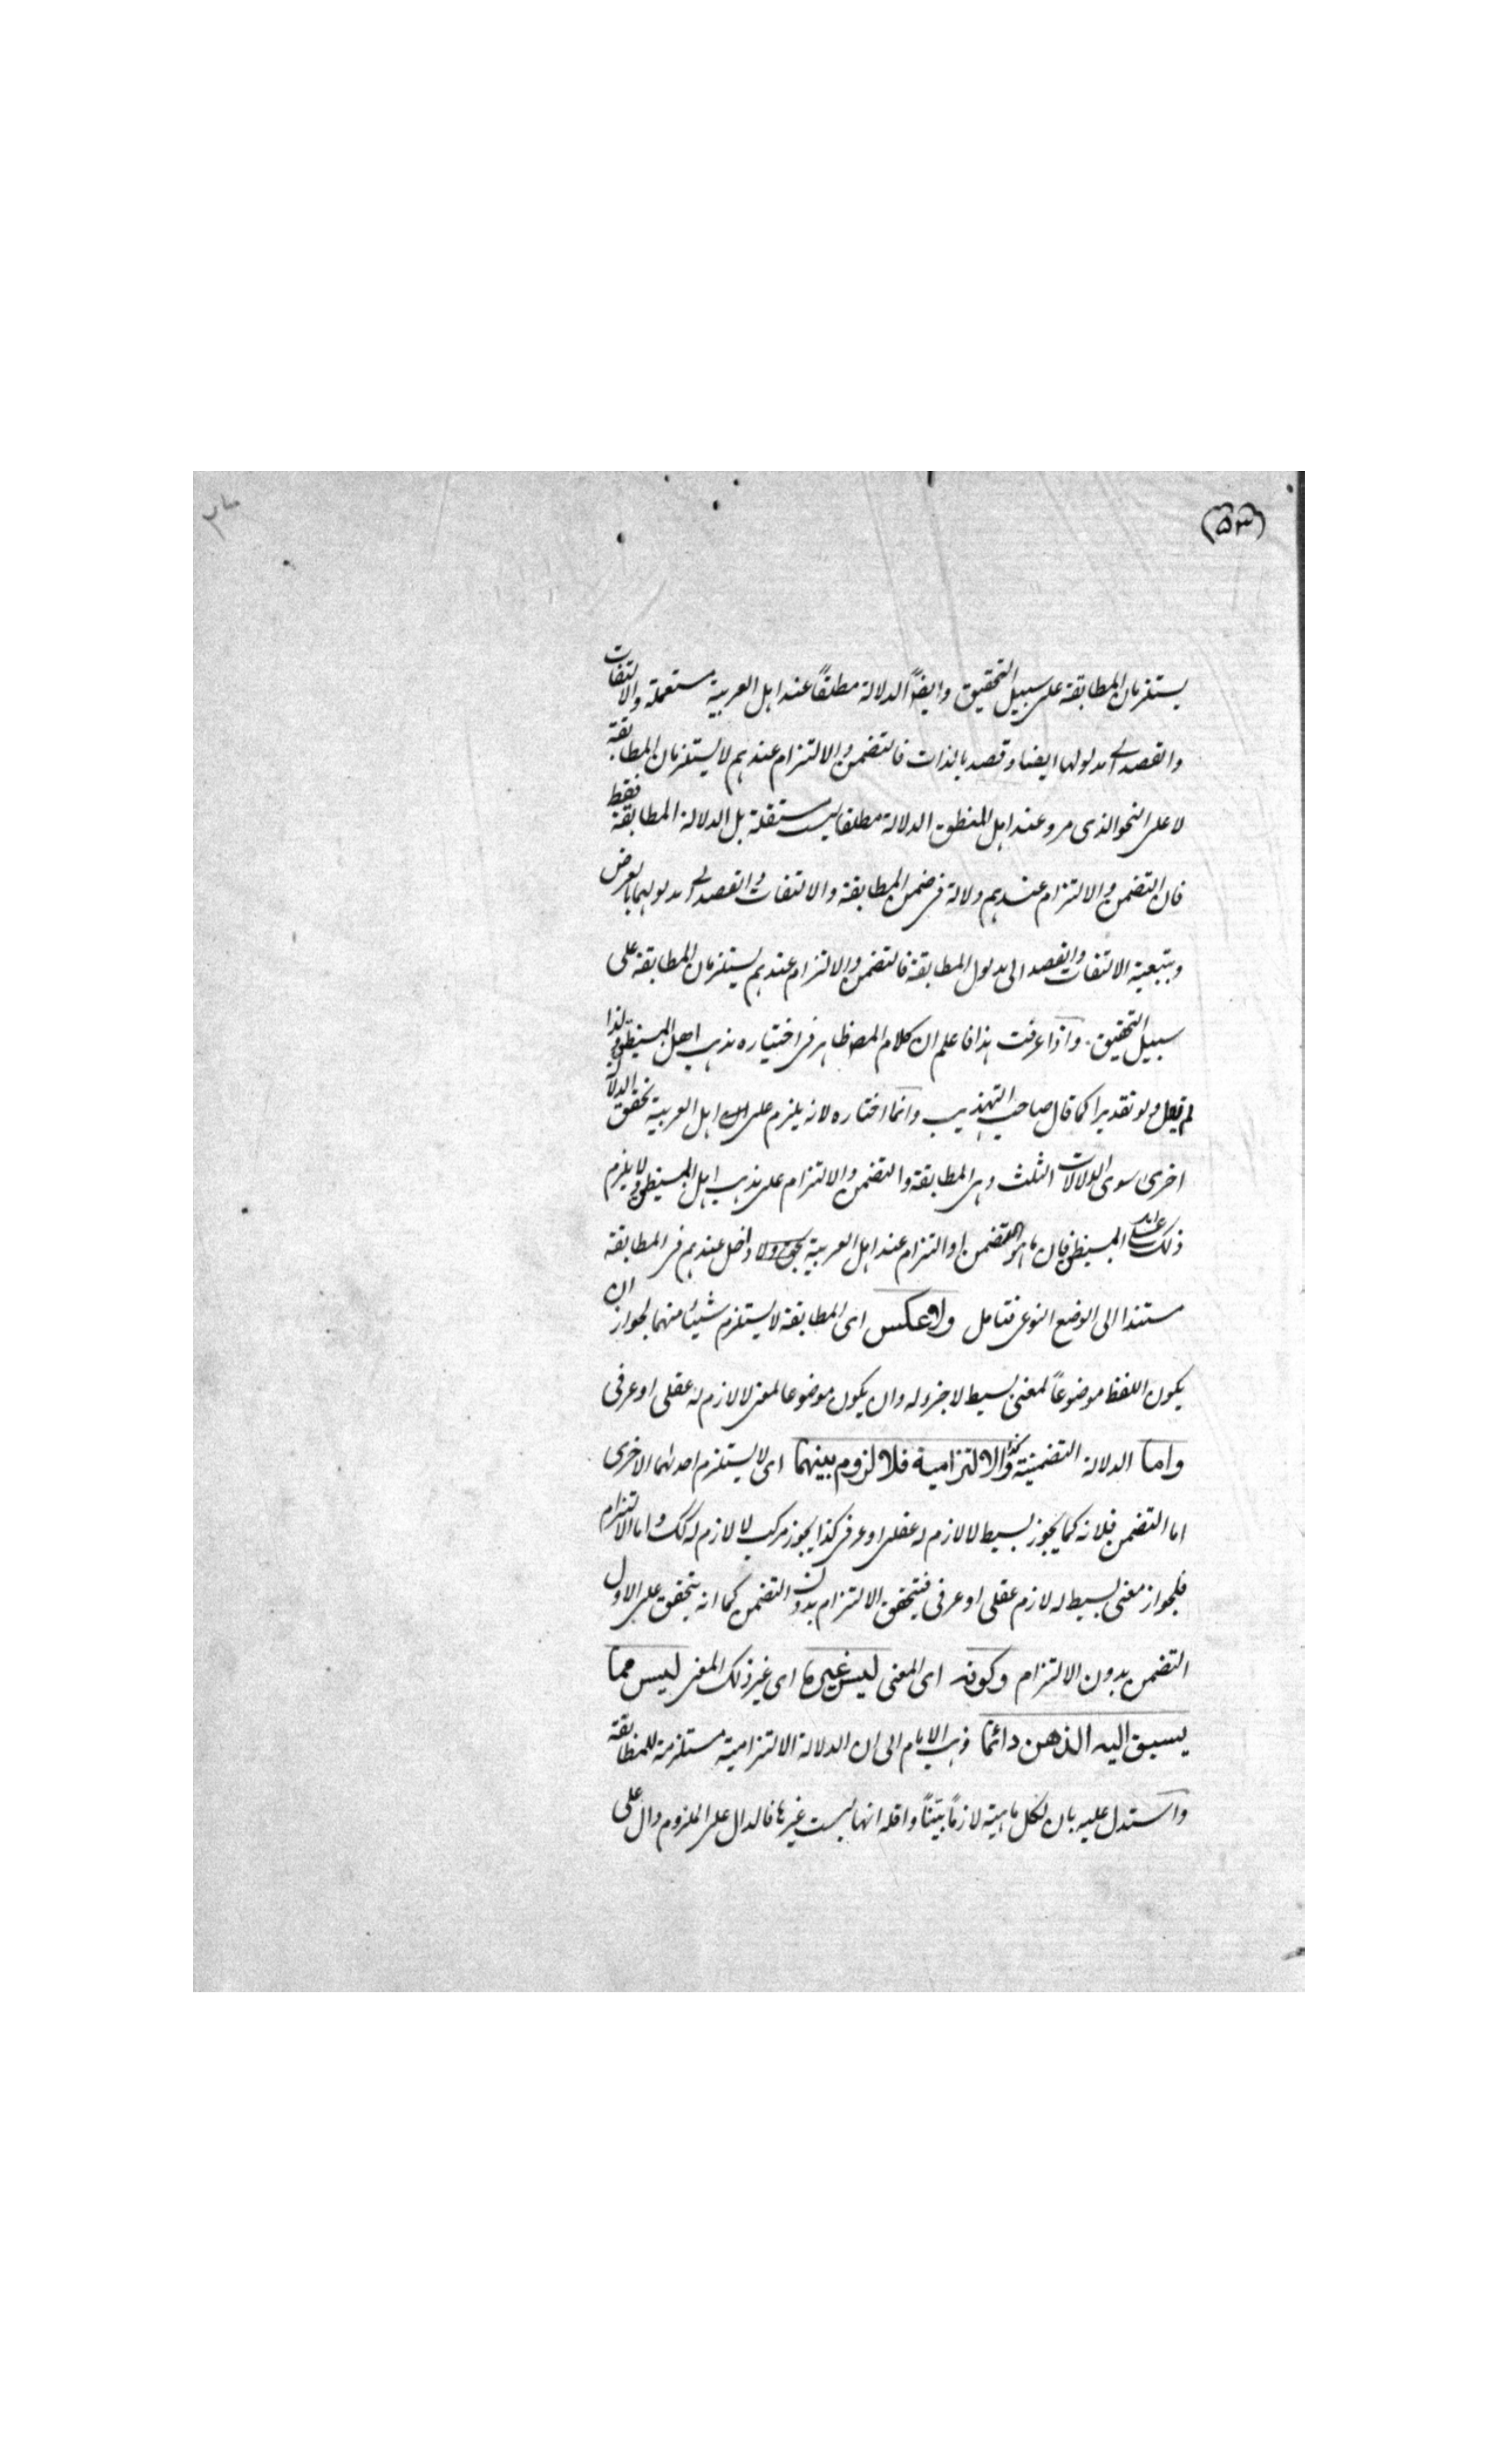 (٥٣)
يستلزمان المطابقة على سبيل التحقيق وايضاً الدلالة مطلقاً عند اهل العربية مستعملة والالتفات
والقصد الى مدلولها ايضا وقصد بالذات فالتضمن والالتزام عندهم لا يستلزمان المطابقة
لا على النحو الذى مر وعند اهل المنطق الدلالة مطلقا ليست مستقلة بل الدلالة المطابقة فقط
فان التضمن والالتزام عندهم دلالة فى ضمن المطابقة والالتفات والقصد الى مدلولهما بالعرض
وبتبعية الالتفات والقصد الى مدلول المطابقة فالتضمن والالتزام عندهم يستلزمان المطابقة على
سبيل التحقيق. واذا عرفت هذا فاعلم ان كلام المصـ ظاهر فى اختياره مذهب اهل الميـنطق ولذا
لم يقل ولو تقديرا كما قال صاحب التهذيب وانما اختاره لانه يلزم على اهل العربية تحقق الدلالة
اخرى سوى الدلالات الثلث وهى المطابقة والتضمن والالتزام على مذهب اهل الميـنطق ولا يلزم
ذلك عند اهل الميـنطق فان ما هو التضمن او التزام عند اهل العربية داخل عندهم فى المطابقة
مستندا الى الوضع النوعى فتامل ولا عكس اى المطابقة لا يستلزم شيئا منهما لجواز ان
يكون اللفظ موضوعاً لمعنى بسيط لا جزء له وان يكون موضوعا لمعنى لا لازم له عقلى او عرفى
واما الدلالة التضمنية وكذا الالتزامية فلا لزوم بينهما اى لا يستلزم احدلهما الاخرى
اما التضمن فلانه كما يجوز بسيط لا لازم له عقلى او عرفى كذا يجوز مركب لا لازم له كك واما الالتزام
فلجواز معنى بسيط له لازم عقلى او عرفى فيتحقق الالتزام بدون التضمن كما انه يتحقق على الاول
التضمن بدون الالتزام وكونه اى المعنى ليس غيره اى غير ذلك المعنى ليس مما
يسبق اليه الذهن دائما ذهب الامام الى ان الدلالة الالتزامية مستلزمة للمطابقة
واستدل عليه بان لكل ماهية لازماً بيّناً واقله انها ليست غيرها فالدال على الملزوم دال على